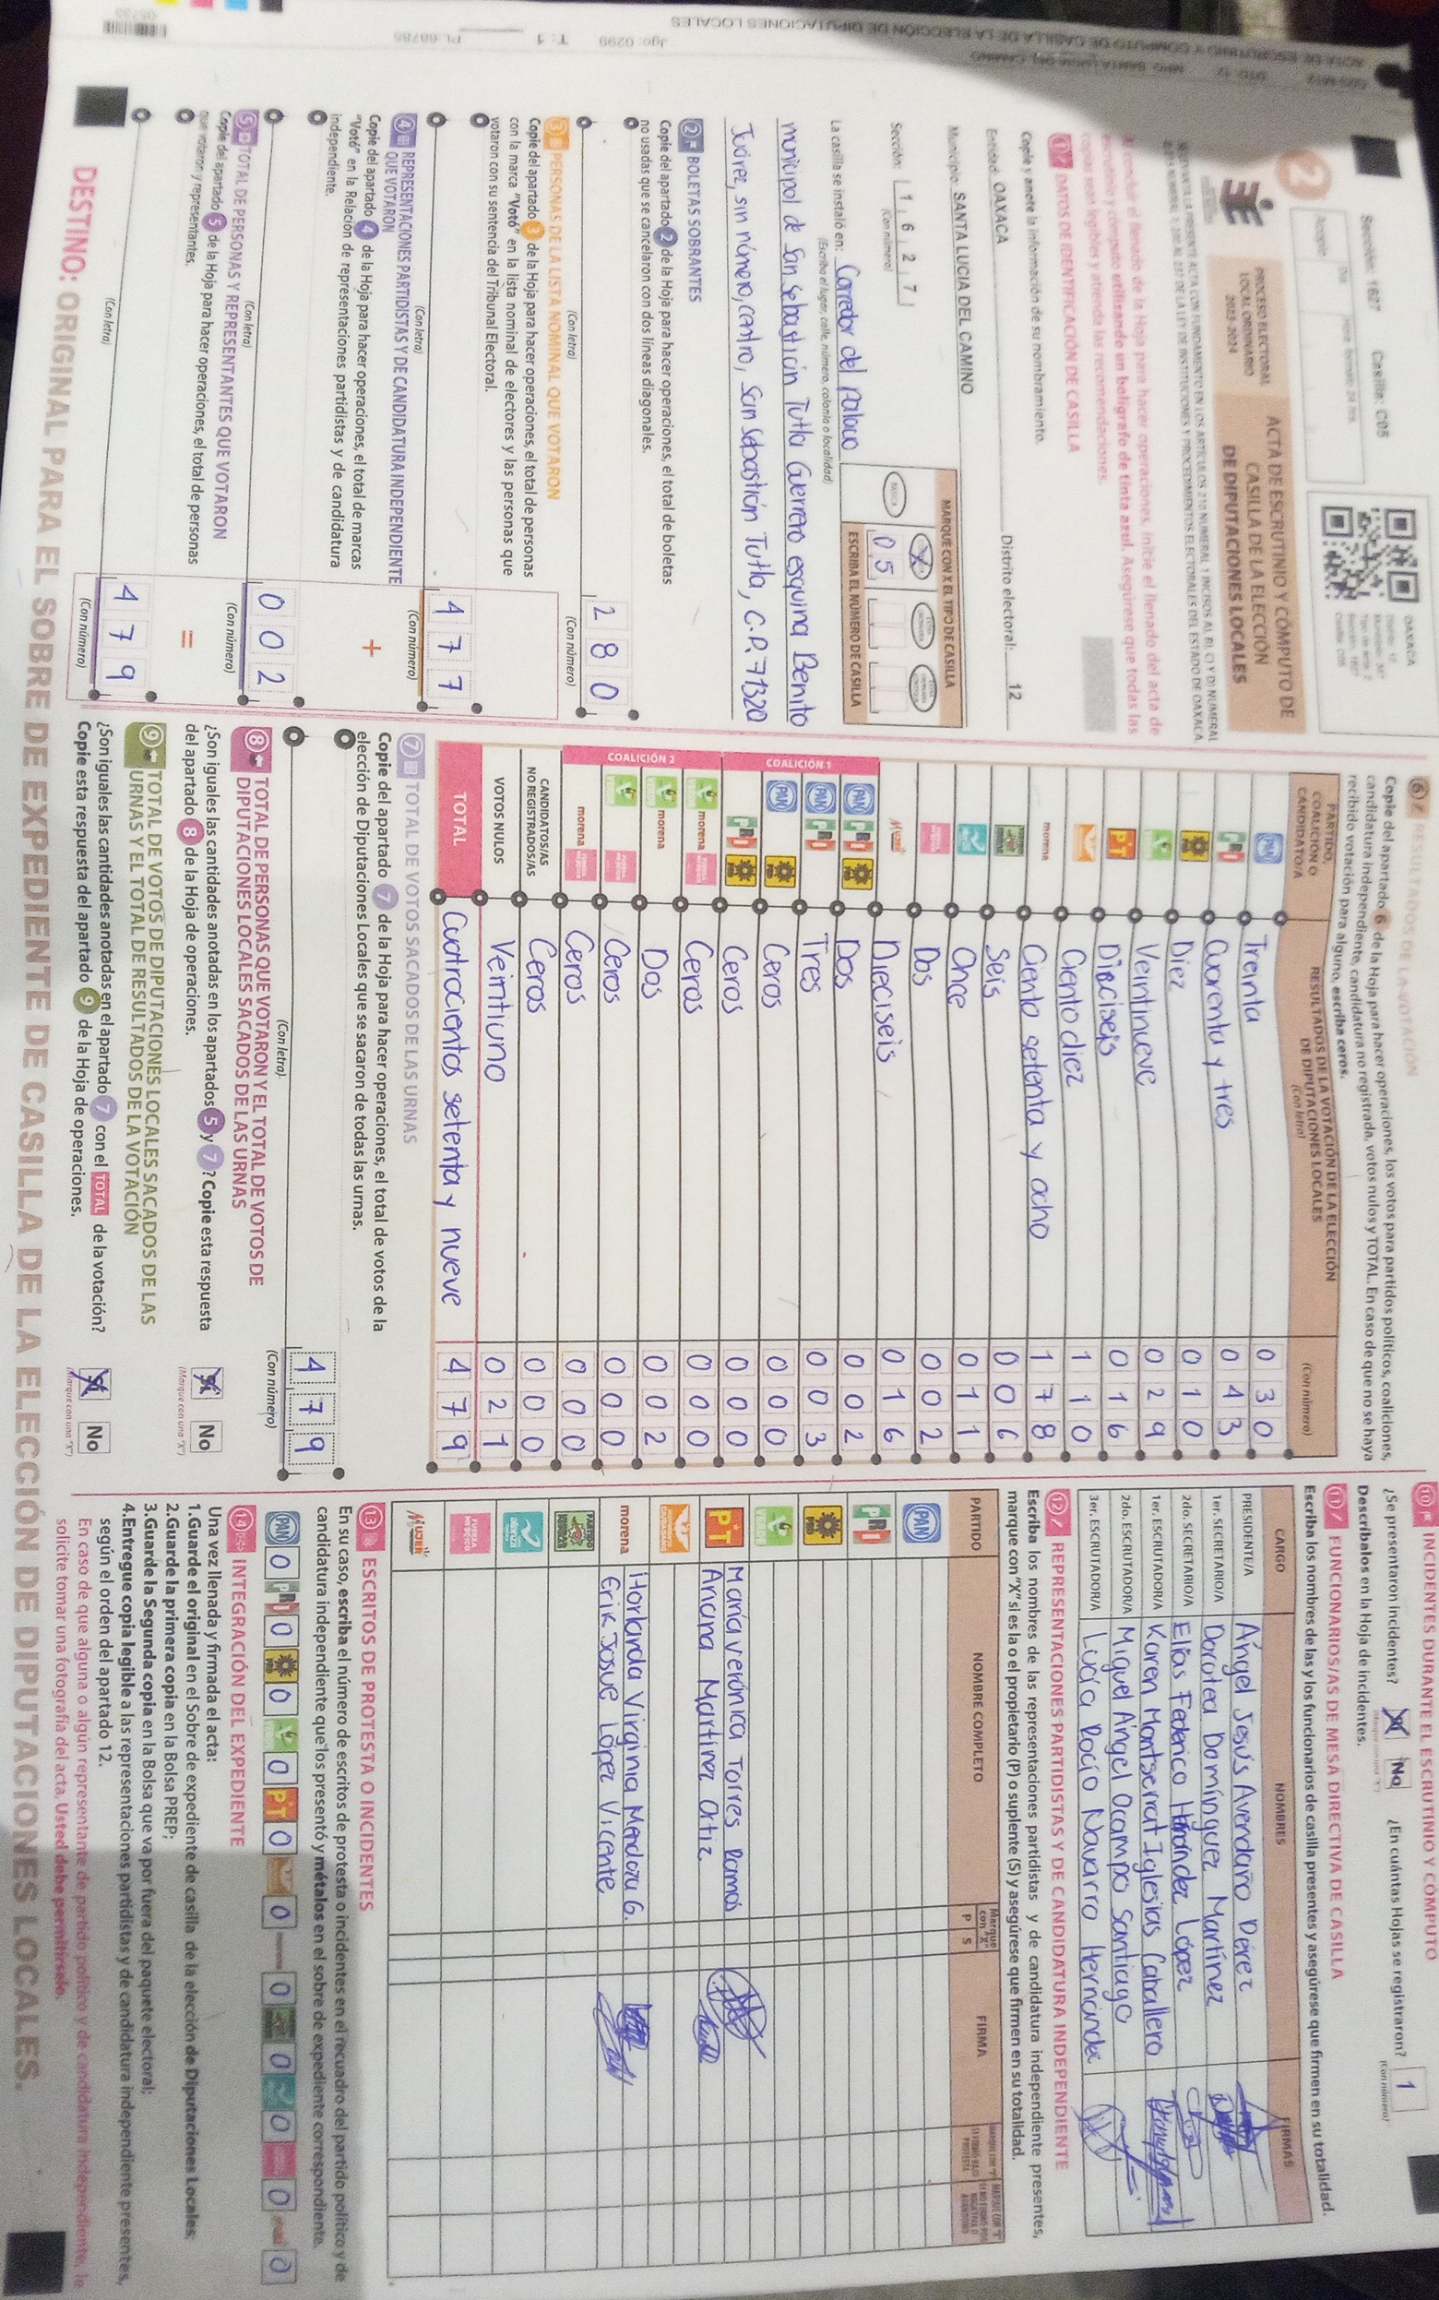 Sección: 1627 Casilla: C05
OAXACA
2
PROCESO ELECTORAL
LOCAL ORDINARIO
2023-2024
ACTA DE ESCRUTINIO Y CÓMPUTO DE
CASILLA DE LA ELECCIÓN
DE DIPUTACIONES LOCALES
1 DATOS DE IDENTIFICACIÓN DE CASILLA
Copie y anote la información de su nombramiento.
Entidad: OAXACA Distrito electoral: 12
Municipio: SANTA LUCIA DEL CAMINO
Sección: 1 6 2 7
(Con número)
MARQUE CON X EL TIPO DE CASILLA
0 5
ESCRIBA EL NÚMERO DE CASILLA
La casilla se instaló en: Corredor del Palacio
(Escriba el lugar, calle, número, colonia o localidad)
municipal de San Sebastián Tutla Guerrero esquina Benito
Juárez, sin número, centro, San Sebastián Tutla, C.P. 71320
2 BOLETAS SOBRANTES
Copie del apartado 2 de la Hoja para hacer operaciones, el total de boletas
no usadas que se cancelaron con dos líneas diagonales.
2 8 0
(Con letra) (Con número)
3 PERSONAS DE LA LISTA NOMINAL QUE VOTARON
Copie del apartado 3 de la Hoja para hacer operaciones, el total de personas
con la marca "Votó" en la lista nominal de electores y las personas que
votaron con su sentencia del Tribunal Electoral.
4 7 7
(Con letra) (Con número)
4 REPRESENTACIONES PARTIDISTAS Y DE CANDIDATURA INDEPENDIENTE
QUE VOTARON
+
Copie del apartado 4 de la Hoja para hacer operaciones, el total de marcas
"Votó" en la Relación de representaciones partidistas y de candidatura
independiente.
0 0 2
(Con letra) (Con número)
5 TOTAL DE PERSONAS Y REPRESENTANTES QUE VOTARON
=
Copie del apartado 5 de la Hoja para hacer operaciones, el total de personas
que votaron y representantes.
4 7 9
(Con letra) (Con número)
6 RESULTADOS DE LA VOTACIÓN
Copie del apartado 6 de la Hoja para hacer operaciones, los votos para partidos políticos, coaliciones,
candidatura independiente, candidatura no registrada, votos nulos y TOTAL. En caso de que no se haya
recibido votación para alguno, escriba ceros.
PARTIDO,
COALICIÓN O
CANDIDATO/A
RESULTADOS DE LA VOTACIÓN DE LA ELECCIÓN
DE DIPUTACIONES LOCALES
(Con letra) (Con número)
PAN Treinta 0 3 0
PRI Cuarenta y tres 0 4 3
PRD Diez 0 1 0
VERDE Veintinueve 0 2 9
PT Dieciseis 0 1 6
Ciento diez 1 1 0
morena Ciento setenta y ocho 1 7 8
Seis 0 0 6
Once 0 1 1
Dos 0 0 2
MUJER Dieciseis 0 1 6
COALICIÓN 1
PAN PRI PRD Dos 0 0 2
PAN PRI Tres 0 0 3
PAN PRD Ceros 0 0 0
PRI PRD Ceros 0 0 0
COALICIÓN 2
VERDE morena Ceros 0 0 0
VERDE morena Dos 0 0 2
VERDE Ceros 0 0 0
morena Ceros 0 0 0
CANDIDATOS/AS
NO REGISTRADOS/AS Ceros 0 0 0
VOTOS NULOS Veintiuno 0 2 1
TOTAL Cuatrocientos setenta y nueve 4 7 9
7 TOTAL DE VOTOS SACADOS DE LAS URNAS
Copie del apartado 7 de la Hoja para hacer operaciones, el total de votos de la
elección de Diputaciones Locales que se sacaron de todas las urnas.
4 7 9
(Con letra) (Con número)
8 TOTAL DE PERSONAS QUE VOTARON Y EL TOTAL DE VOTOS DE
DIPUTACIONES LOCALES SACADOS DE LAS URNAS
¿Son iguales las cantidades anotadas en los apartados 5 y 7? Copie esta respuesta
del apartado 8 de la Hoja de operaciones.
Sí No
(Marque con una "X")
9 TOTAL DE VOTOS DE DIPUTACIONES LOCALES SACADOS DE LAS
URNAS Y EL TOTAL DE RESULTADOS DE LA VOTACIÓN
¿Son iguales las cantidades anotadas en el apartado 7 con el TOTAL de la votación?
Copie esta respuesta del apartado 9 de la Hoja de operaciones.
Sí No
(Marque con una "X")
10 INCIDENTES DURANTE EL ESCRUTINIO Y CÓMPUTO
¿Se presentaron incidentes? Sí No ¿En cuántas Hojas se registraron? 1
(Con número)
Descríbalos en la Hoja de incidentes.
11 FUNCIONARIOS/AS DE MESA DIRECTIVA DE CASILLA
Escriba los nombres de las y los funcionarios de casilla presentes y asegúrese que firmen en su totalidad.
CARGO NOMBRES FIRMAS
PRESIDENTE/A Ángel Jesús Avendaño Pérez
1er. SECRETARIO/A Dorotea Domínguez Martínez
2do. SECRETARIO/A Elías Federico Hernández López
1er. ESCRUTADOR/A Karen Montserrat Iglesias Caballero
2do. ESCRUTADOR/A Miguel Ángel Ocampo Santiago
3er. ESCRUTADOR/A Lucía Rocío Navarro Hernández
12 REPRESENTACIONES PARTIDISTAS Y DE CANDIDATURA INDEPENDIENTE
Escriba los nombres de las representaciones partidistas y de candidatura independiente presentes,
marque con "X" si es la o el propietario (P) o suplente (S) y asegúrese que firmen en su totalidad.
PARTIDO NOMBRE COMPLETO Marque con "X" P S FIRMA
PAN
PRI
PRD
VERDE
PT María Verónica Torres Ramos
Ariana Martinez Ortiz
morena Horlanda Virginia Mendoza G.
Erik Josue López Vicente
MUJER
13 ESCRITOS DE PROTESTA O INCIDENTES
En su caso, escriba el número de escritos de protesta o incidentes en el recuadro del partido político y de
candidatura independiente que los presentó y métalos en el sobre de expediente correspondiente.
PAN 0 PRI 0 PRD 0 VERDE 0 PT 0 0 0 0 0 0 0
14 INTEGRACIÓN DEL EXPEDIENTE
Una vez llenada y firmada el acta:
1.Guarde el original en el Sobre de expediente de casilla de la elección de Diputaciones Locales;
2.Guarde la primera copia en la Bolsa PREP;
3.Guarde la Segunda copia en la Bolsa que va por fuera del paquete electoral;
4.Entregue copia legible a las representaciones partidistas y de candidatura independiente presentes,
según el orden del apartado 12.
En caso de que alguna o algún representante de partido político y de candidatura independiente, le
solicite tomar una fotografía del acta, Usted debe permitírselo.
DESTINO: ORIGINAL PARA EL SOBRE DE EXPEDIENTE DE CASILLA DE LA ELECCIÓN DE DIPUTACIONES LOCALES.